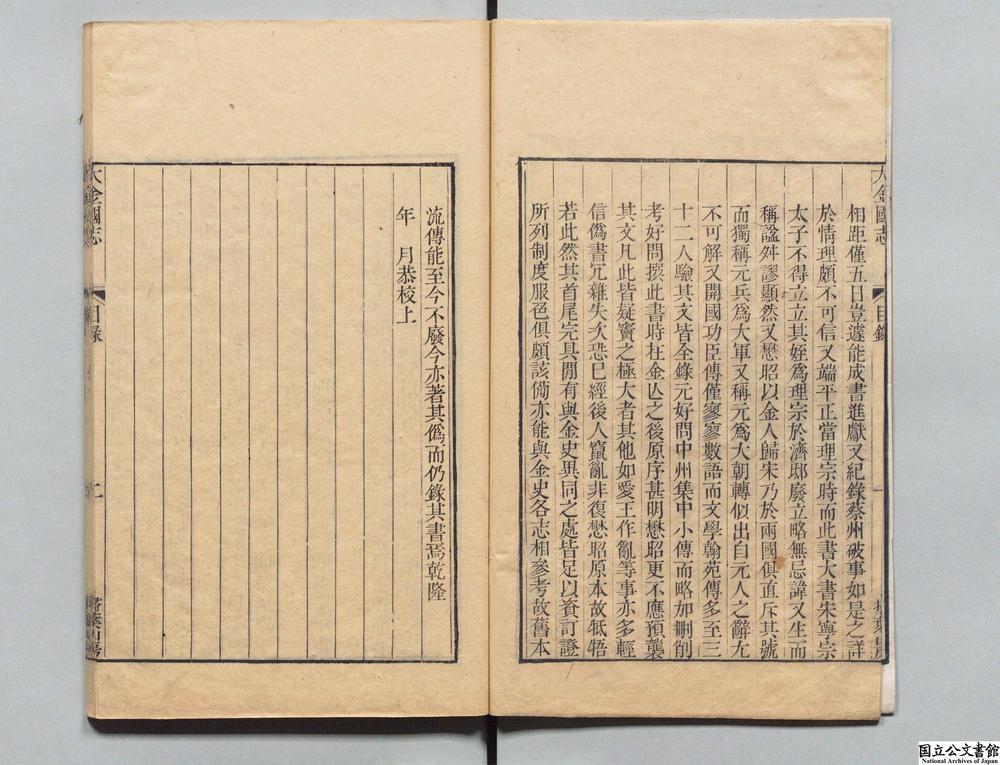 大金國志
目錄
相距僅五日豈遽能成書進獻又紀錄蔡州破事如是之詳
於情理頗不可信又端平正當理宗時而此書大書宋寧宗
太子不得立立其姪爲理宗於濟邸廢立略無忌諱又生而
稱諡舛謬顯然又懋昭以金人歸宋乃於兩國俱直斥其號
而獨稱元兵爲大軍又稱元爲大朝轉似出自元人之辭尤
不可解又開國功臣傳僅寥寥數語而文學翰苑傳多至三
十二人驗其文皆全錄元好問中州集中小傳而略加刪削
考好問撰此書時在金亾之後原序甚明懋昭更不應預襲
其文凡此皆疑竇之極大者其他如愛王作亂等事亦多輕
信僞書冗雜失次恐已經後人竄亂非復懋昭原本故牴牾
若此然其首尾完具閒有與金史異同之處皆足以資訂證
所列制度服色俱頗該備亦能與金史各志相參考故舊本
流傳能至今不廢今亦著其僞而仍錄其書焉乾隆
年　月恭校上
大金國志
目錄
二
掃葉山房
国立公文書館
National Archives of Japan